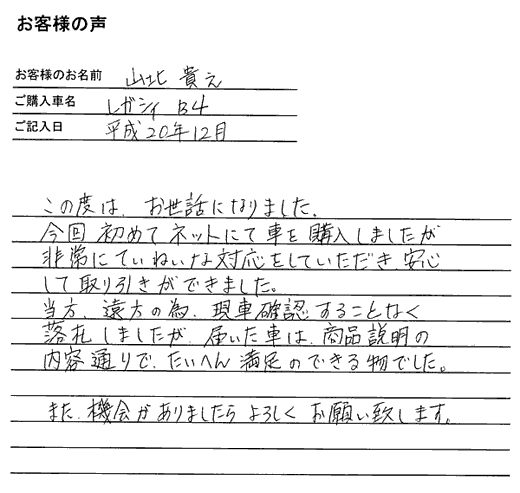 お客様の声
お客様のお名前 山北 貴之
ご購入車名 レガシィ B4
ご記入日 平成20年12月
この度は、お世話になりました。
今回 初めて ネットにて 車を 購入しましたが
非常にていねいな対応をしていただき、安心
して取り引きができました。
当方、遠方の為、現車確認することなく
落札しましたが、届いた車は、商品説明の
内容通りで、たいへん満足のできる物でした。
また、機会がありましたら よろしく お願い致します。